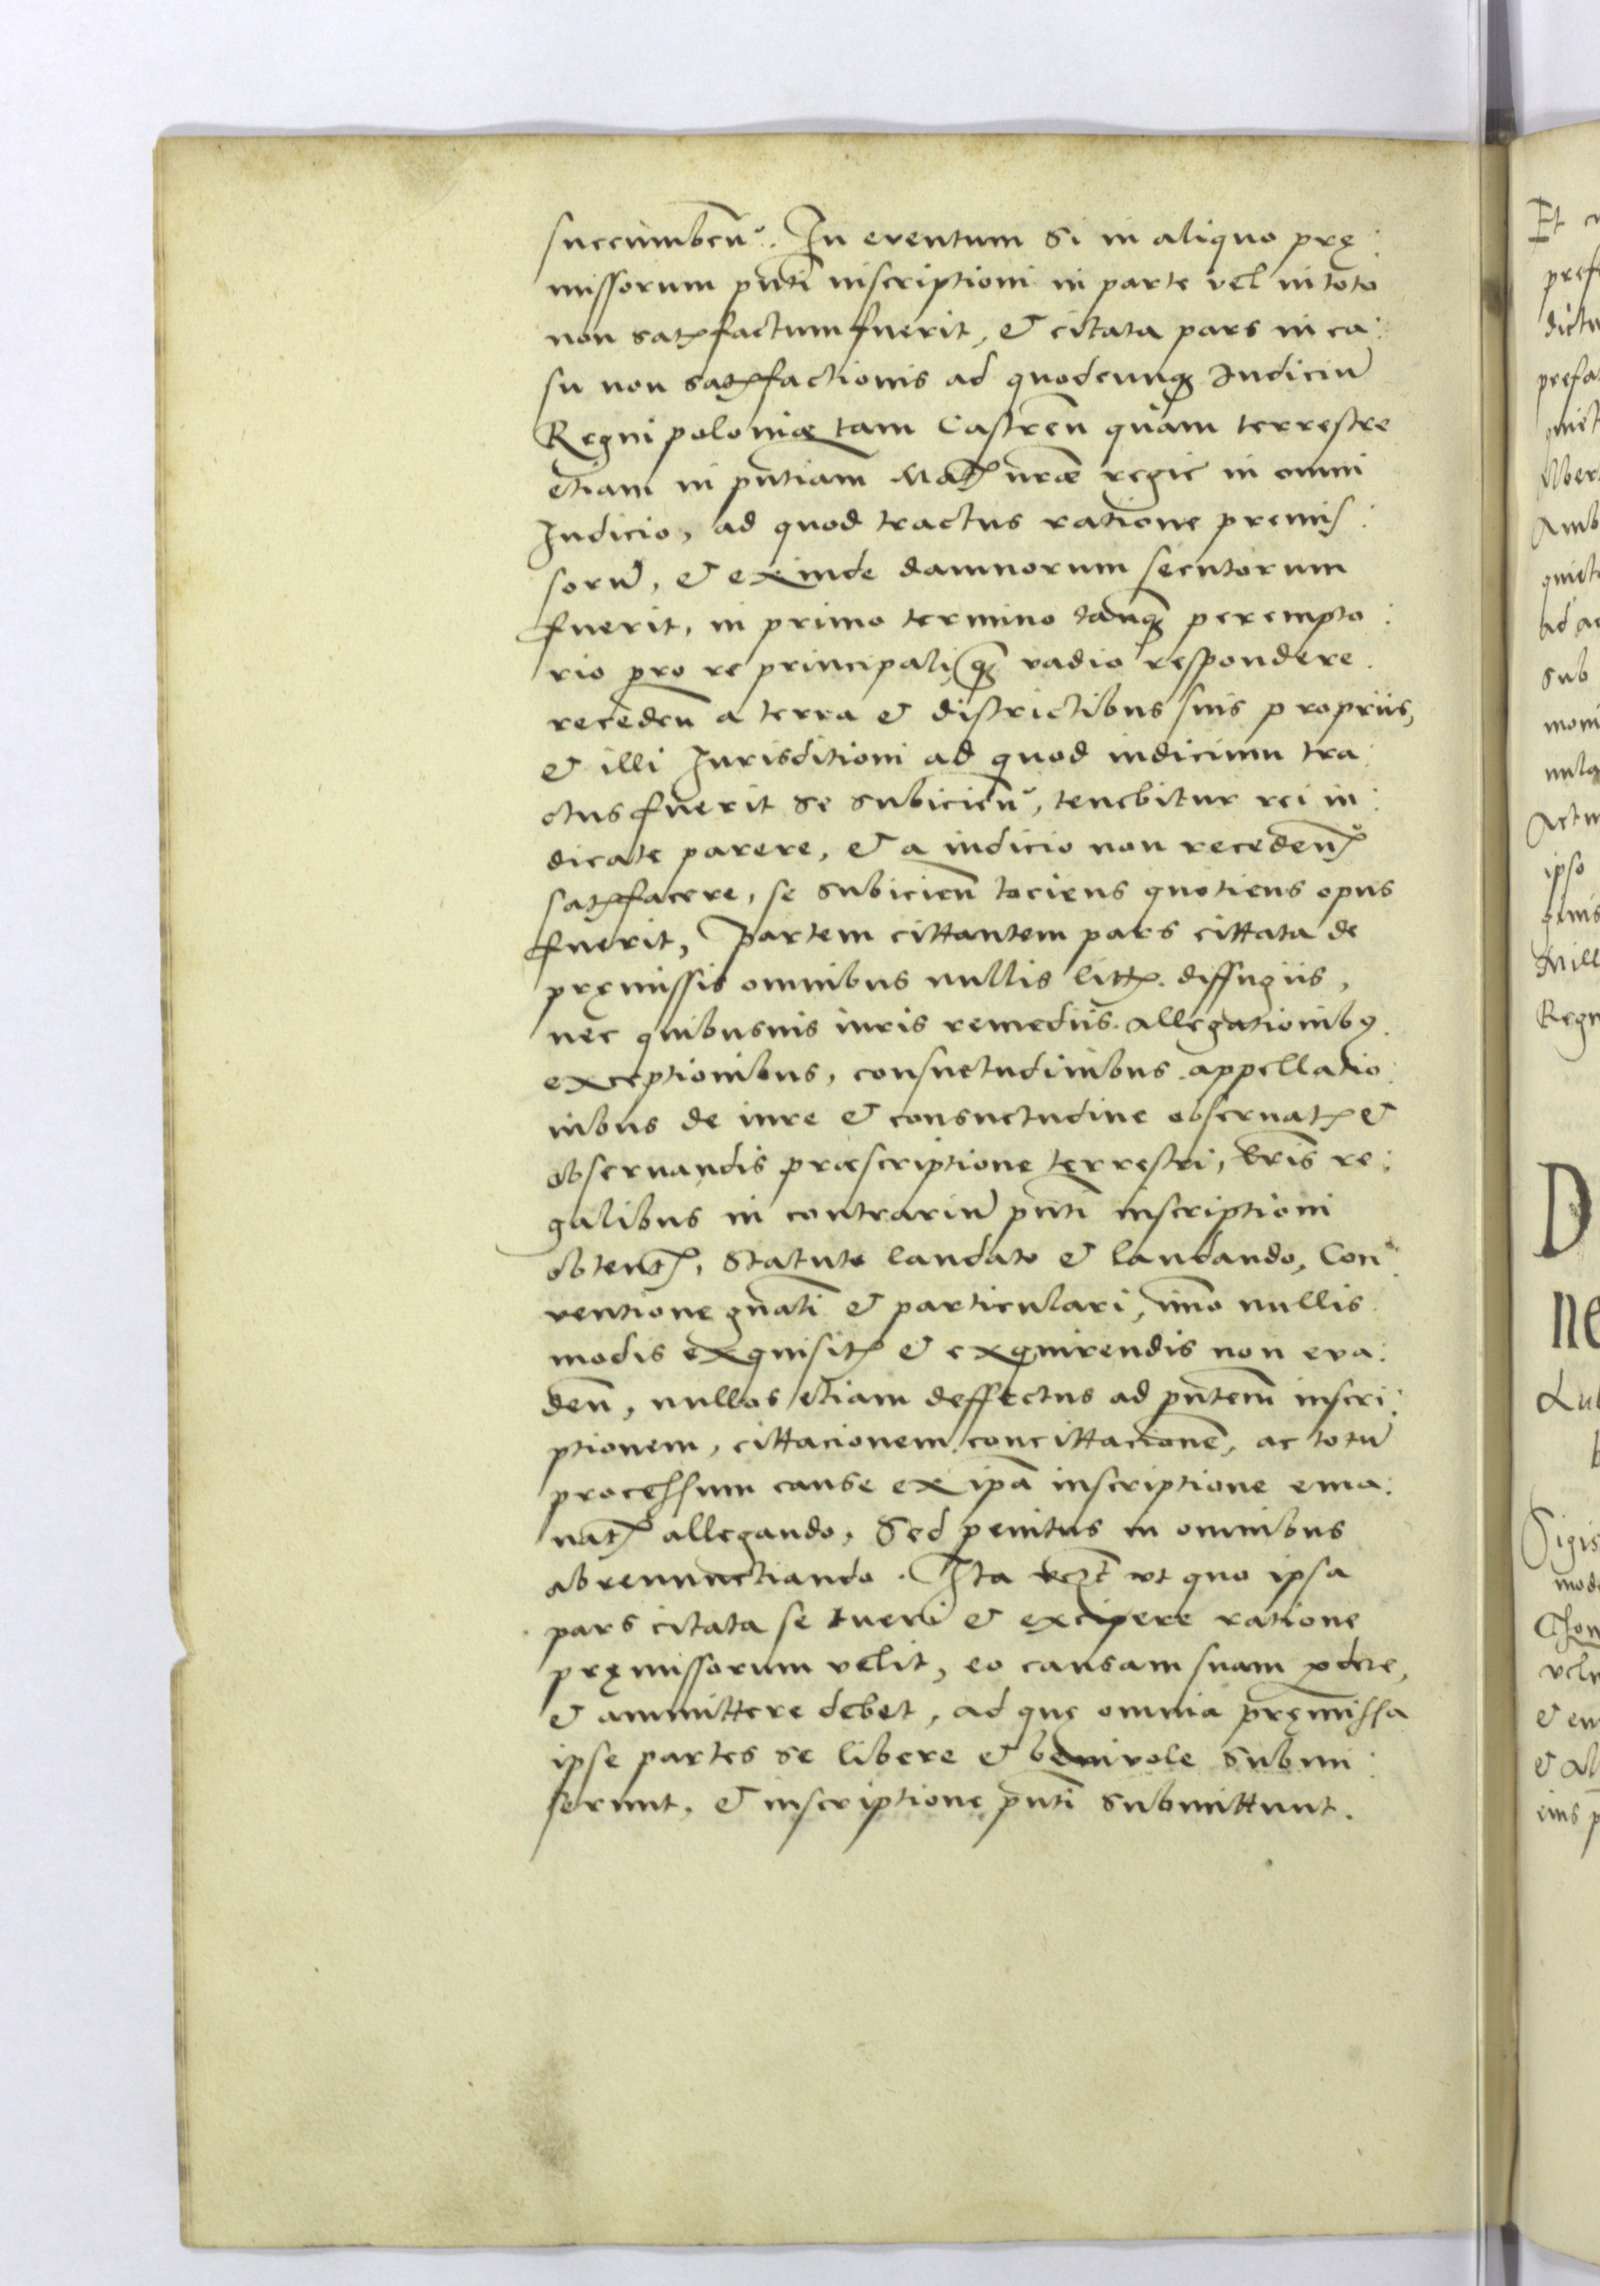 succumbeñ. In eventum Si in aliquo prę:
missorum pñti inscriptioni in parte vel in toto
non satꝭfactum fuerit, & citata pars in ca:
su non satꝭfactionis ad quodcunqꝫ Iudiciũ
Regni poloniæ tam Castreñ quàm terrestre
etiam in pñtiam Matꝭ nr̃æ regie in omni
Iudicio, ad quod tractus ratione premis:
sorũ, & exinde damnorum secutorum
fuerit, in primo termino tanqꝫ perempto:
rio pro re principali, qꝫ vadio respondere.
recedeñ a terra & districtibus suis propriis,
& illi Iurisditioni ad quod iudicium tra:
ctus fuerit se subicieñ, tenebitur rei iu:
dicate parere, & a iudicio non recedeñ
satꝭfacere, se subicieñ tociens quotiens opus
fuerit, Partem cittantem pars cittata de
pręmissis omnibus nullis littꝭ. diffugiis,
nec quibusuis iuris remediis. allegationibꝰ.
exceptionibus, consuetudinibus. appellatio:
nibus de iure & consuetudine obseruatꝭ &
obseruandis præscriptione terrestri, lr̃is re:
galibus in contrariũ pñti inscriptioni
obtentꝭ, Statuto laudato & laudando, Con:
ventione gñali & particulari, im̃o nullis
modis exquisitꝭ & exquirendis non eva:
deñ, nullos etiam deffectus ad pñtem inscri:
ptionem, cittacionem, concittacionẽ, ac totũ
processum cause ex ip̃a inscriptione ema:
natꝭ allegando, Sed penitus in omnibus
abrenunctiando. Ita ut quo ipsa
pars citata se tueri & excipere ratione
pręmissorum velit, eo causam suam ꝑdere,
& ammittere debet, ad quę omnia pręmissa
ipse partes se libere & benivole submi:
serunt, & inscriptione pñti submittunt.